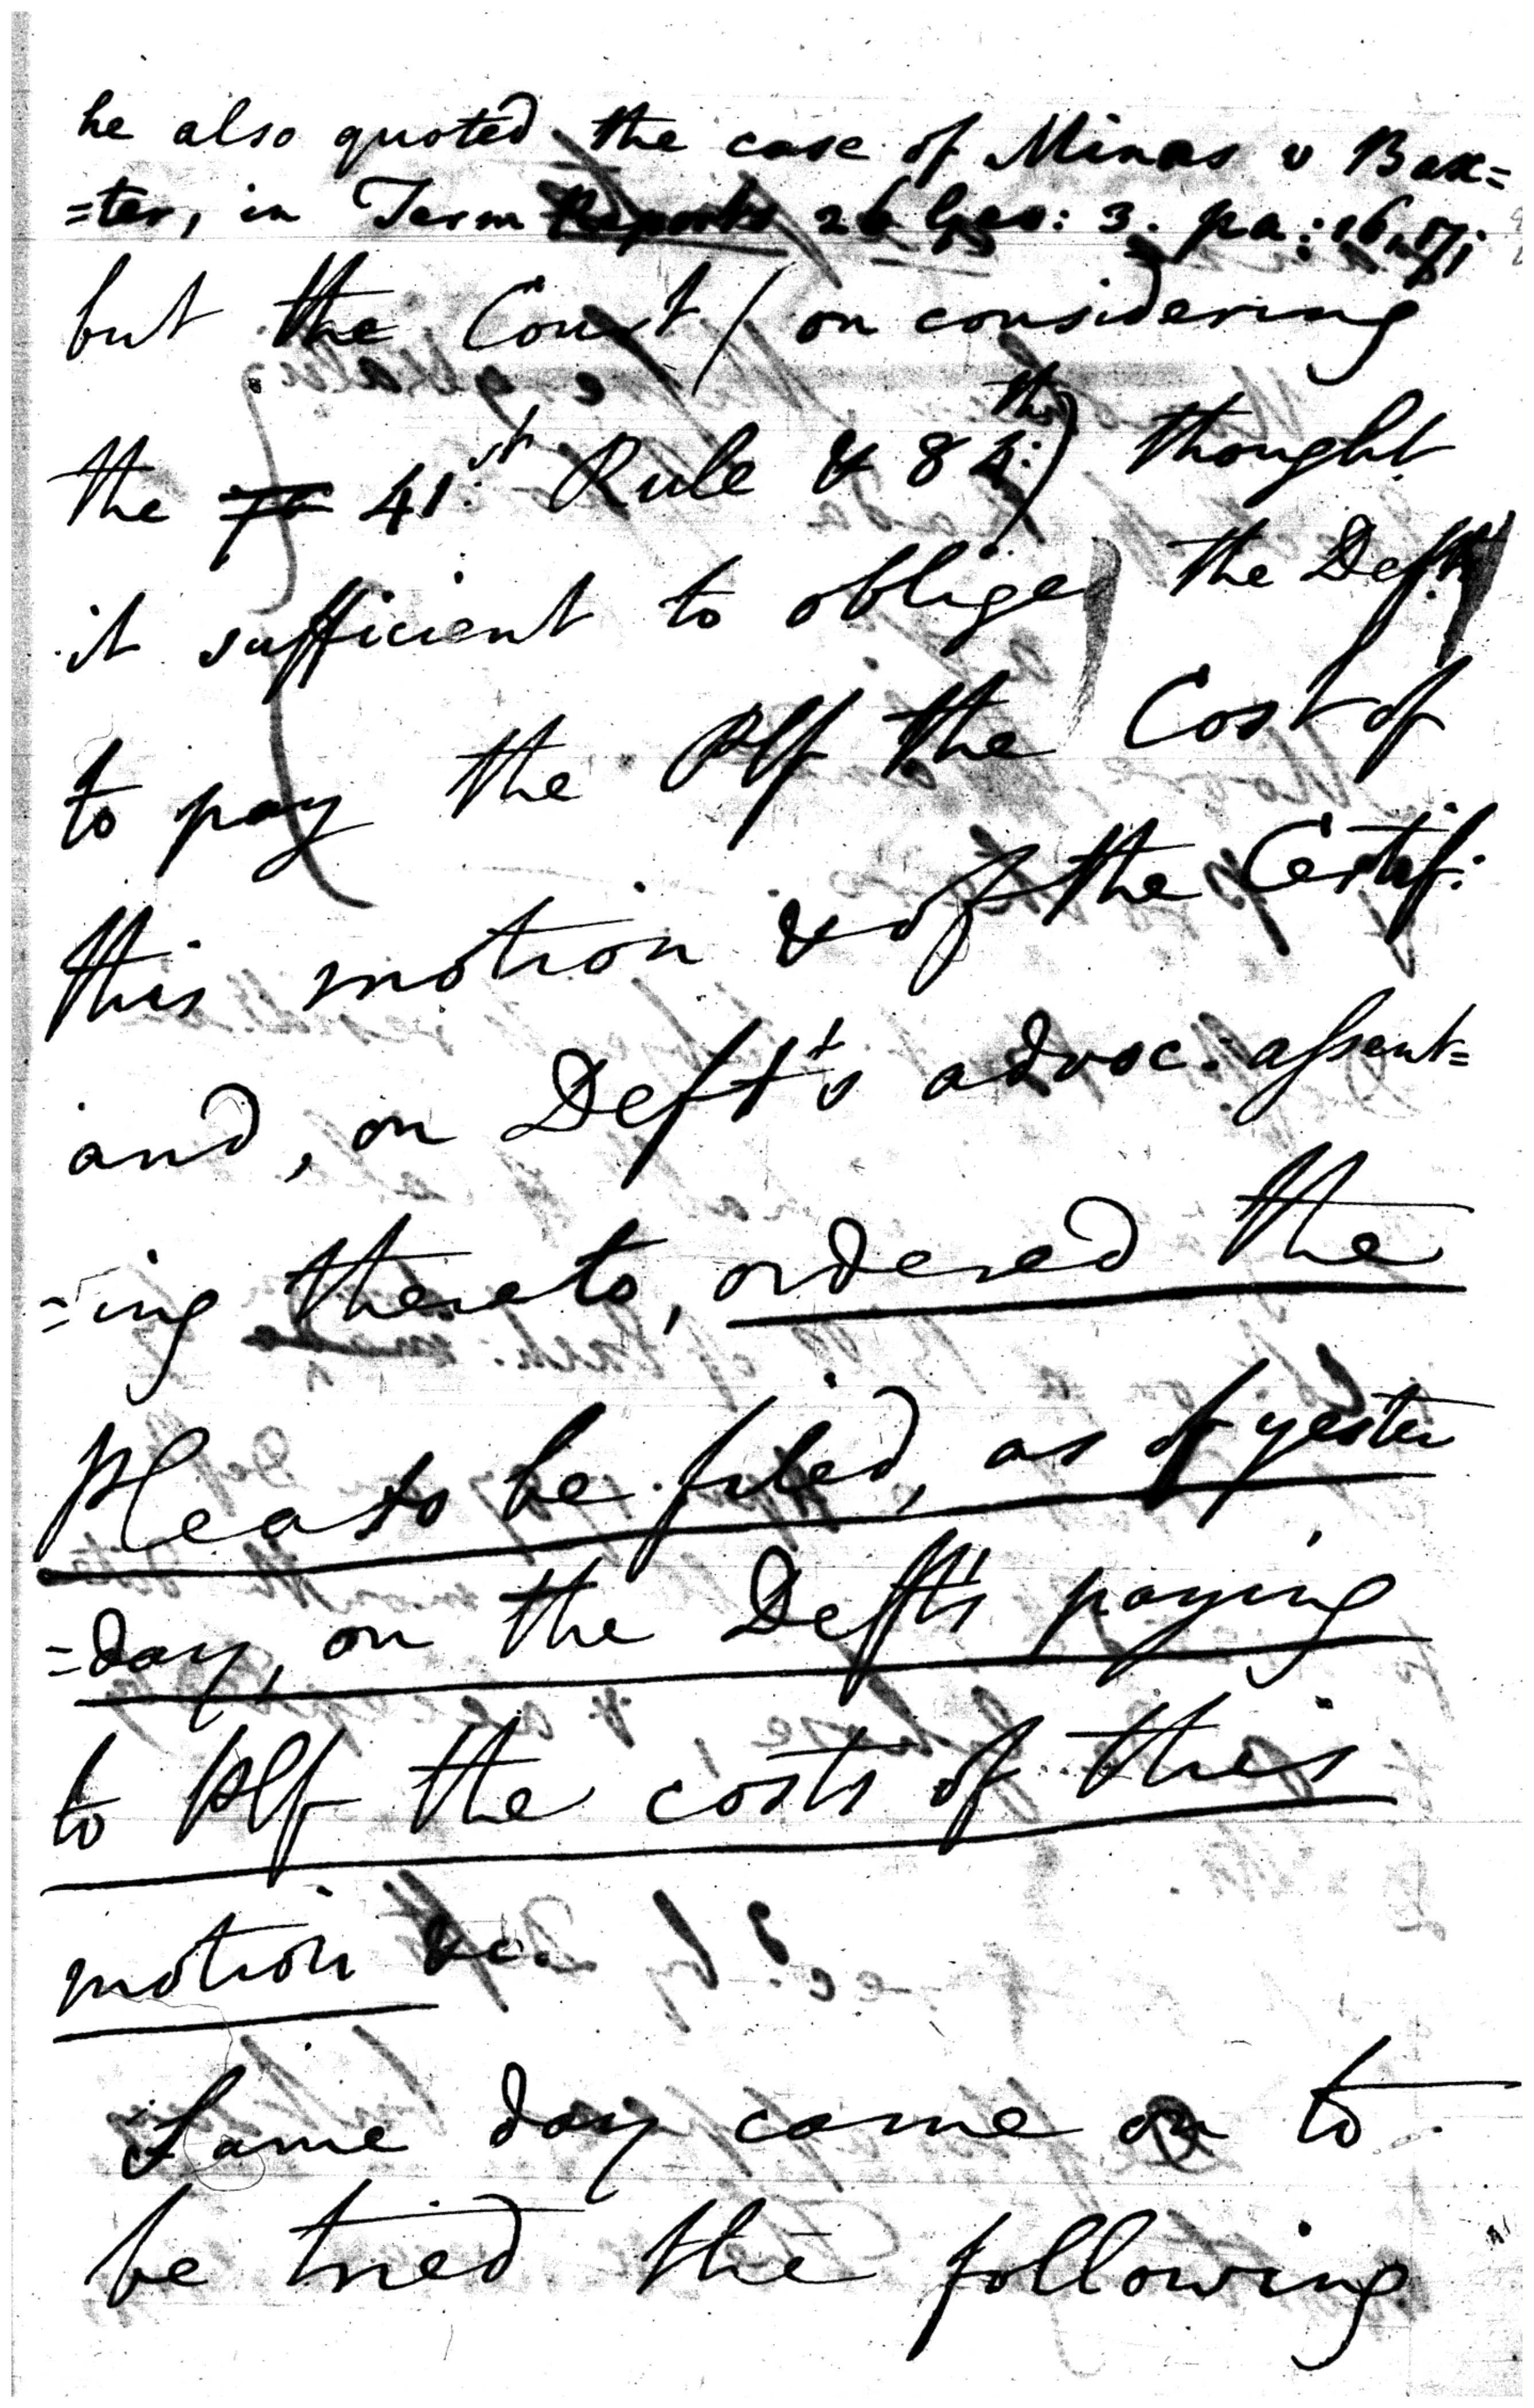 he also quoted the case of Minas v Bax=
=ter, in Term Reports 26 Geo: 3. pa: 16,17;
but the Court (on considering
the 41st: Rule & 84th:) thought
it sufficient to oblige the Defts
to pay the Plf the Cost of
this motion & of the Certif:
and, on Deft's advoc: assent=
=ing thereto, ordered the
Pleas to be filed, as of yester
=day, on the Defts paying
to Plf the costs of this
motion &c.
Same day came on to
be tried the following